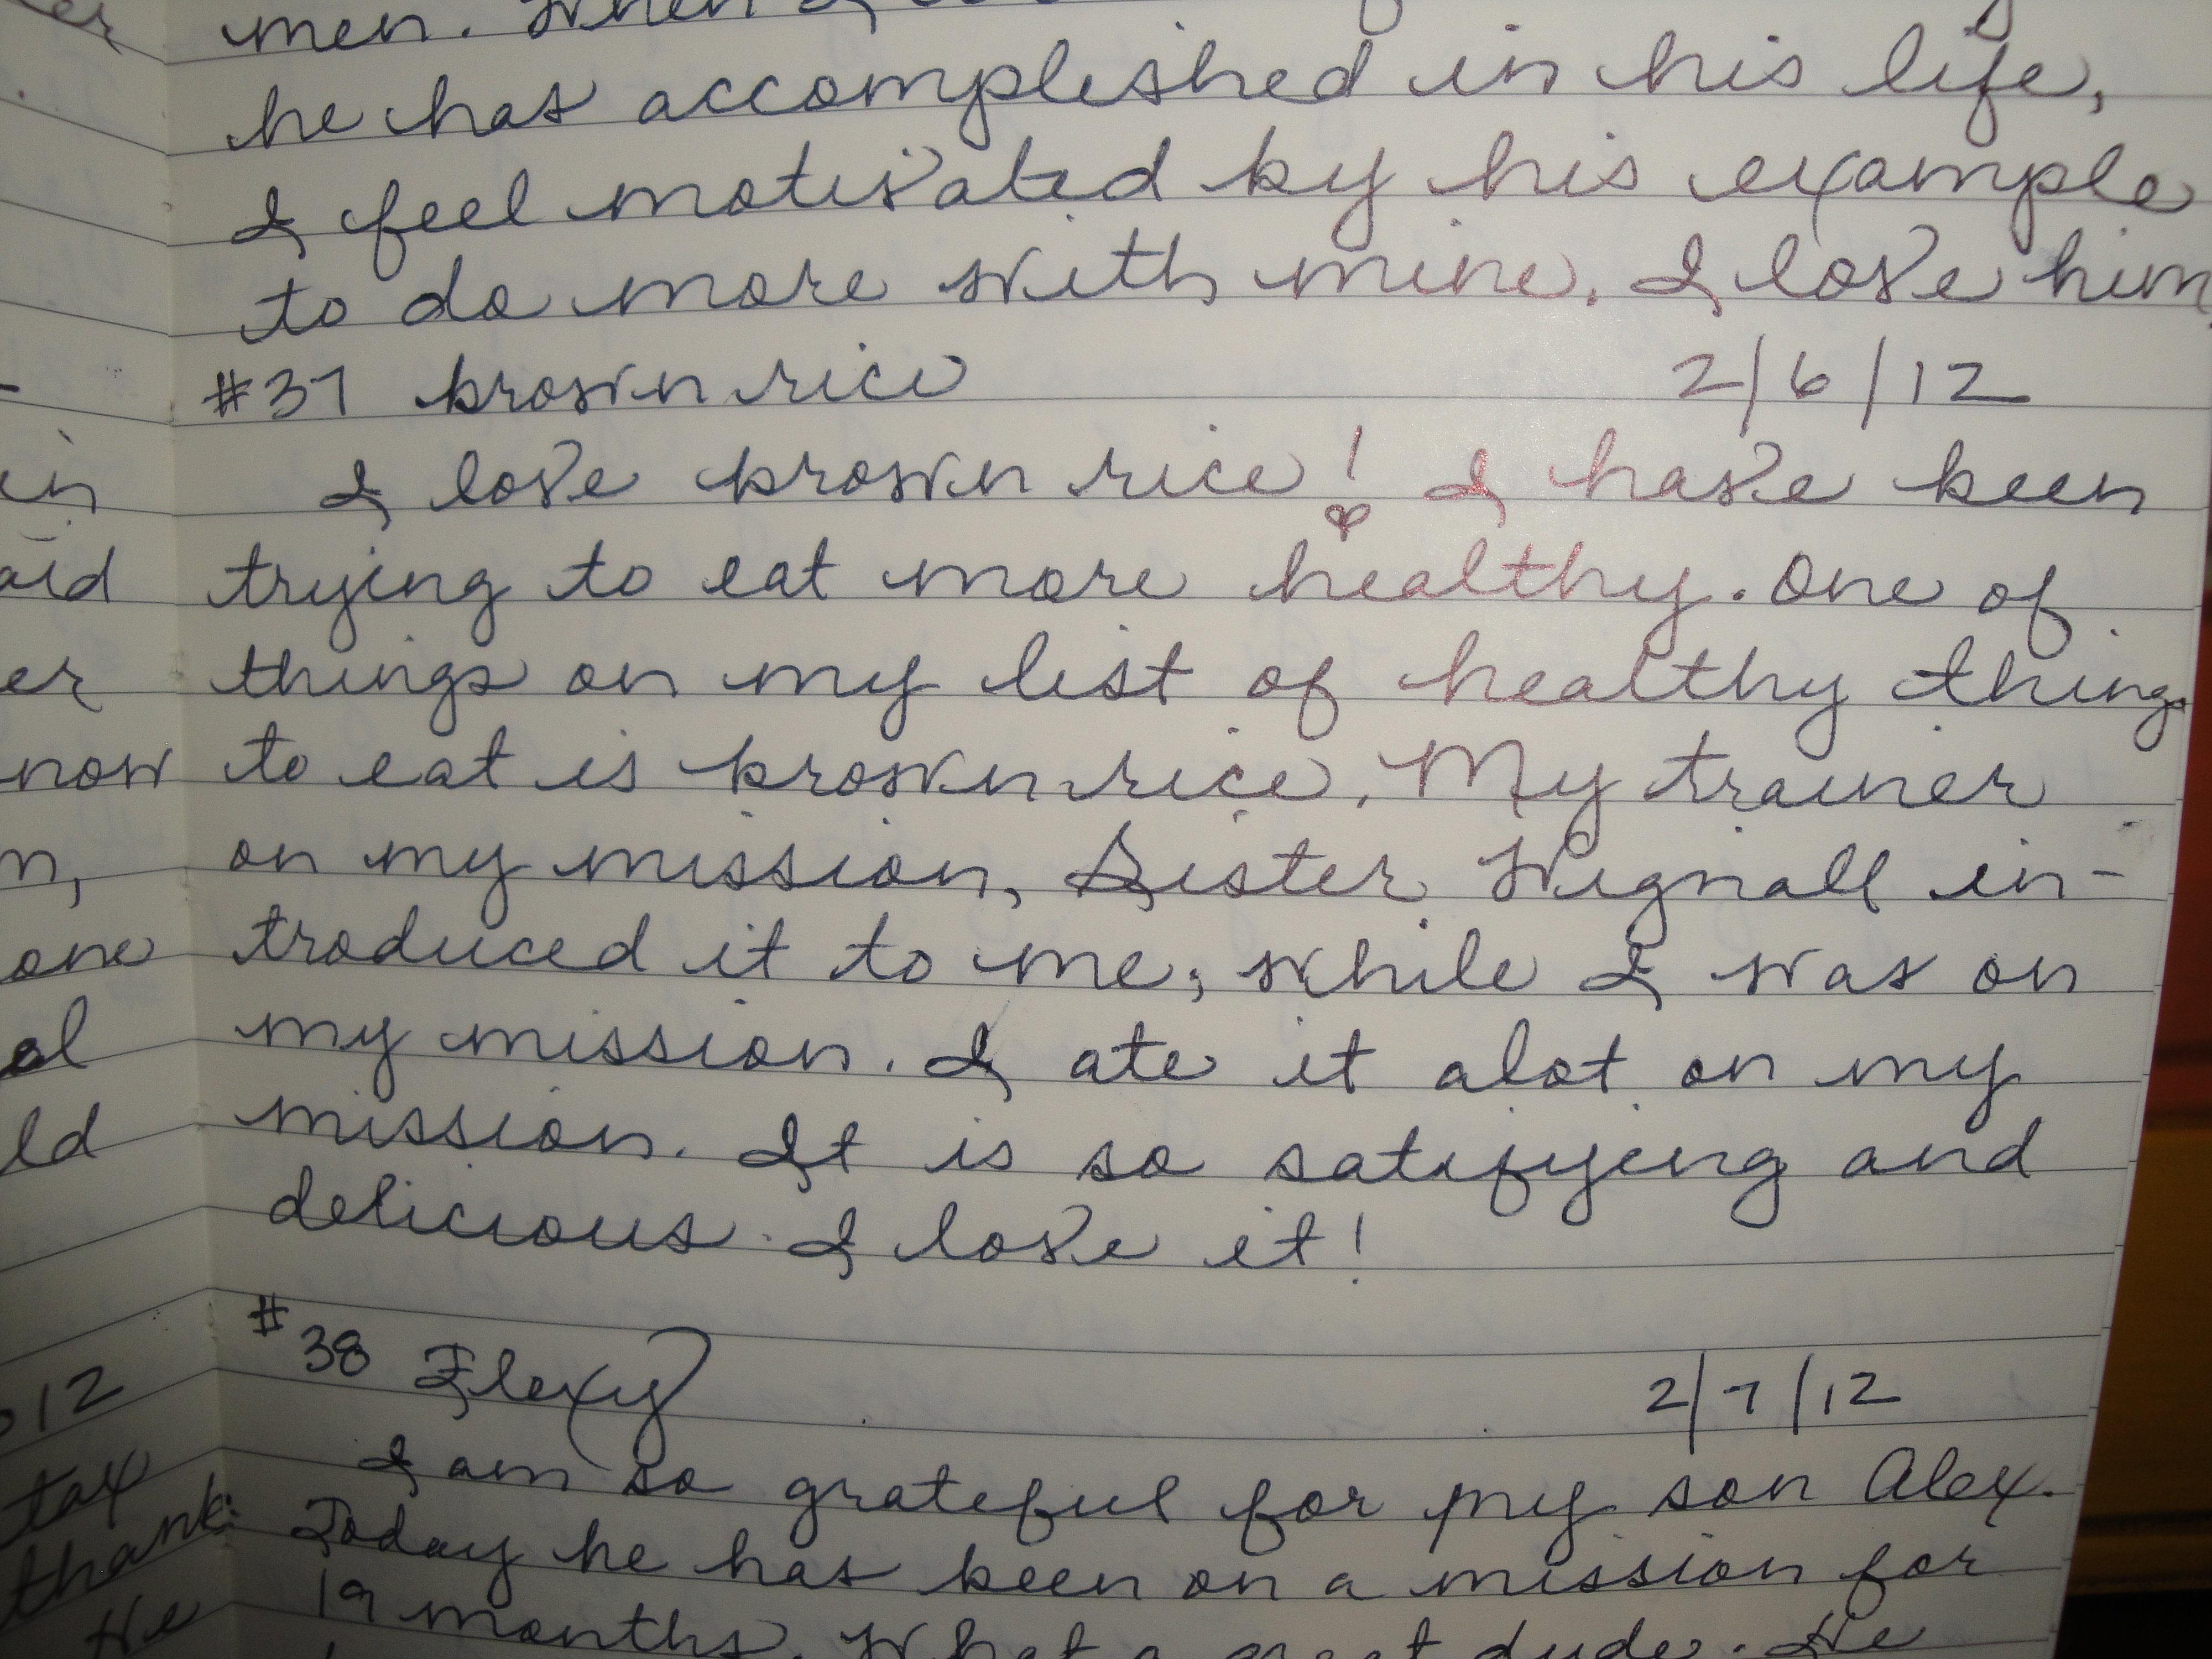 men. When I
he has accomplished in his life,
I feel motivated by his example
to do more with mine. I love him.
#37 brown rice 2/6/12
I love brown rice! I have been
trying to eat more healthy. One of
things on my list of healthy things
to eat is brown rice. My trainer
on my mission, Sister Wignall in-
troduced it to me; while I was on
my mission. I ate it alot on my
mission. It is so satifying and
delicious. I love it!
#38 Flexy 2/7/12
I am so grateful for my son Alex.
Today he has been on a mission for
19 months. What a great dude. He
in
aid
er
now
n,
one
al
ld
12
tax
thank
He